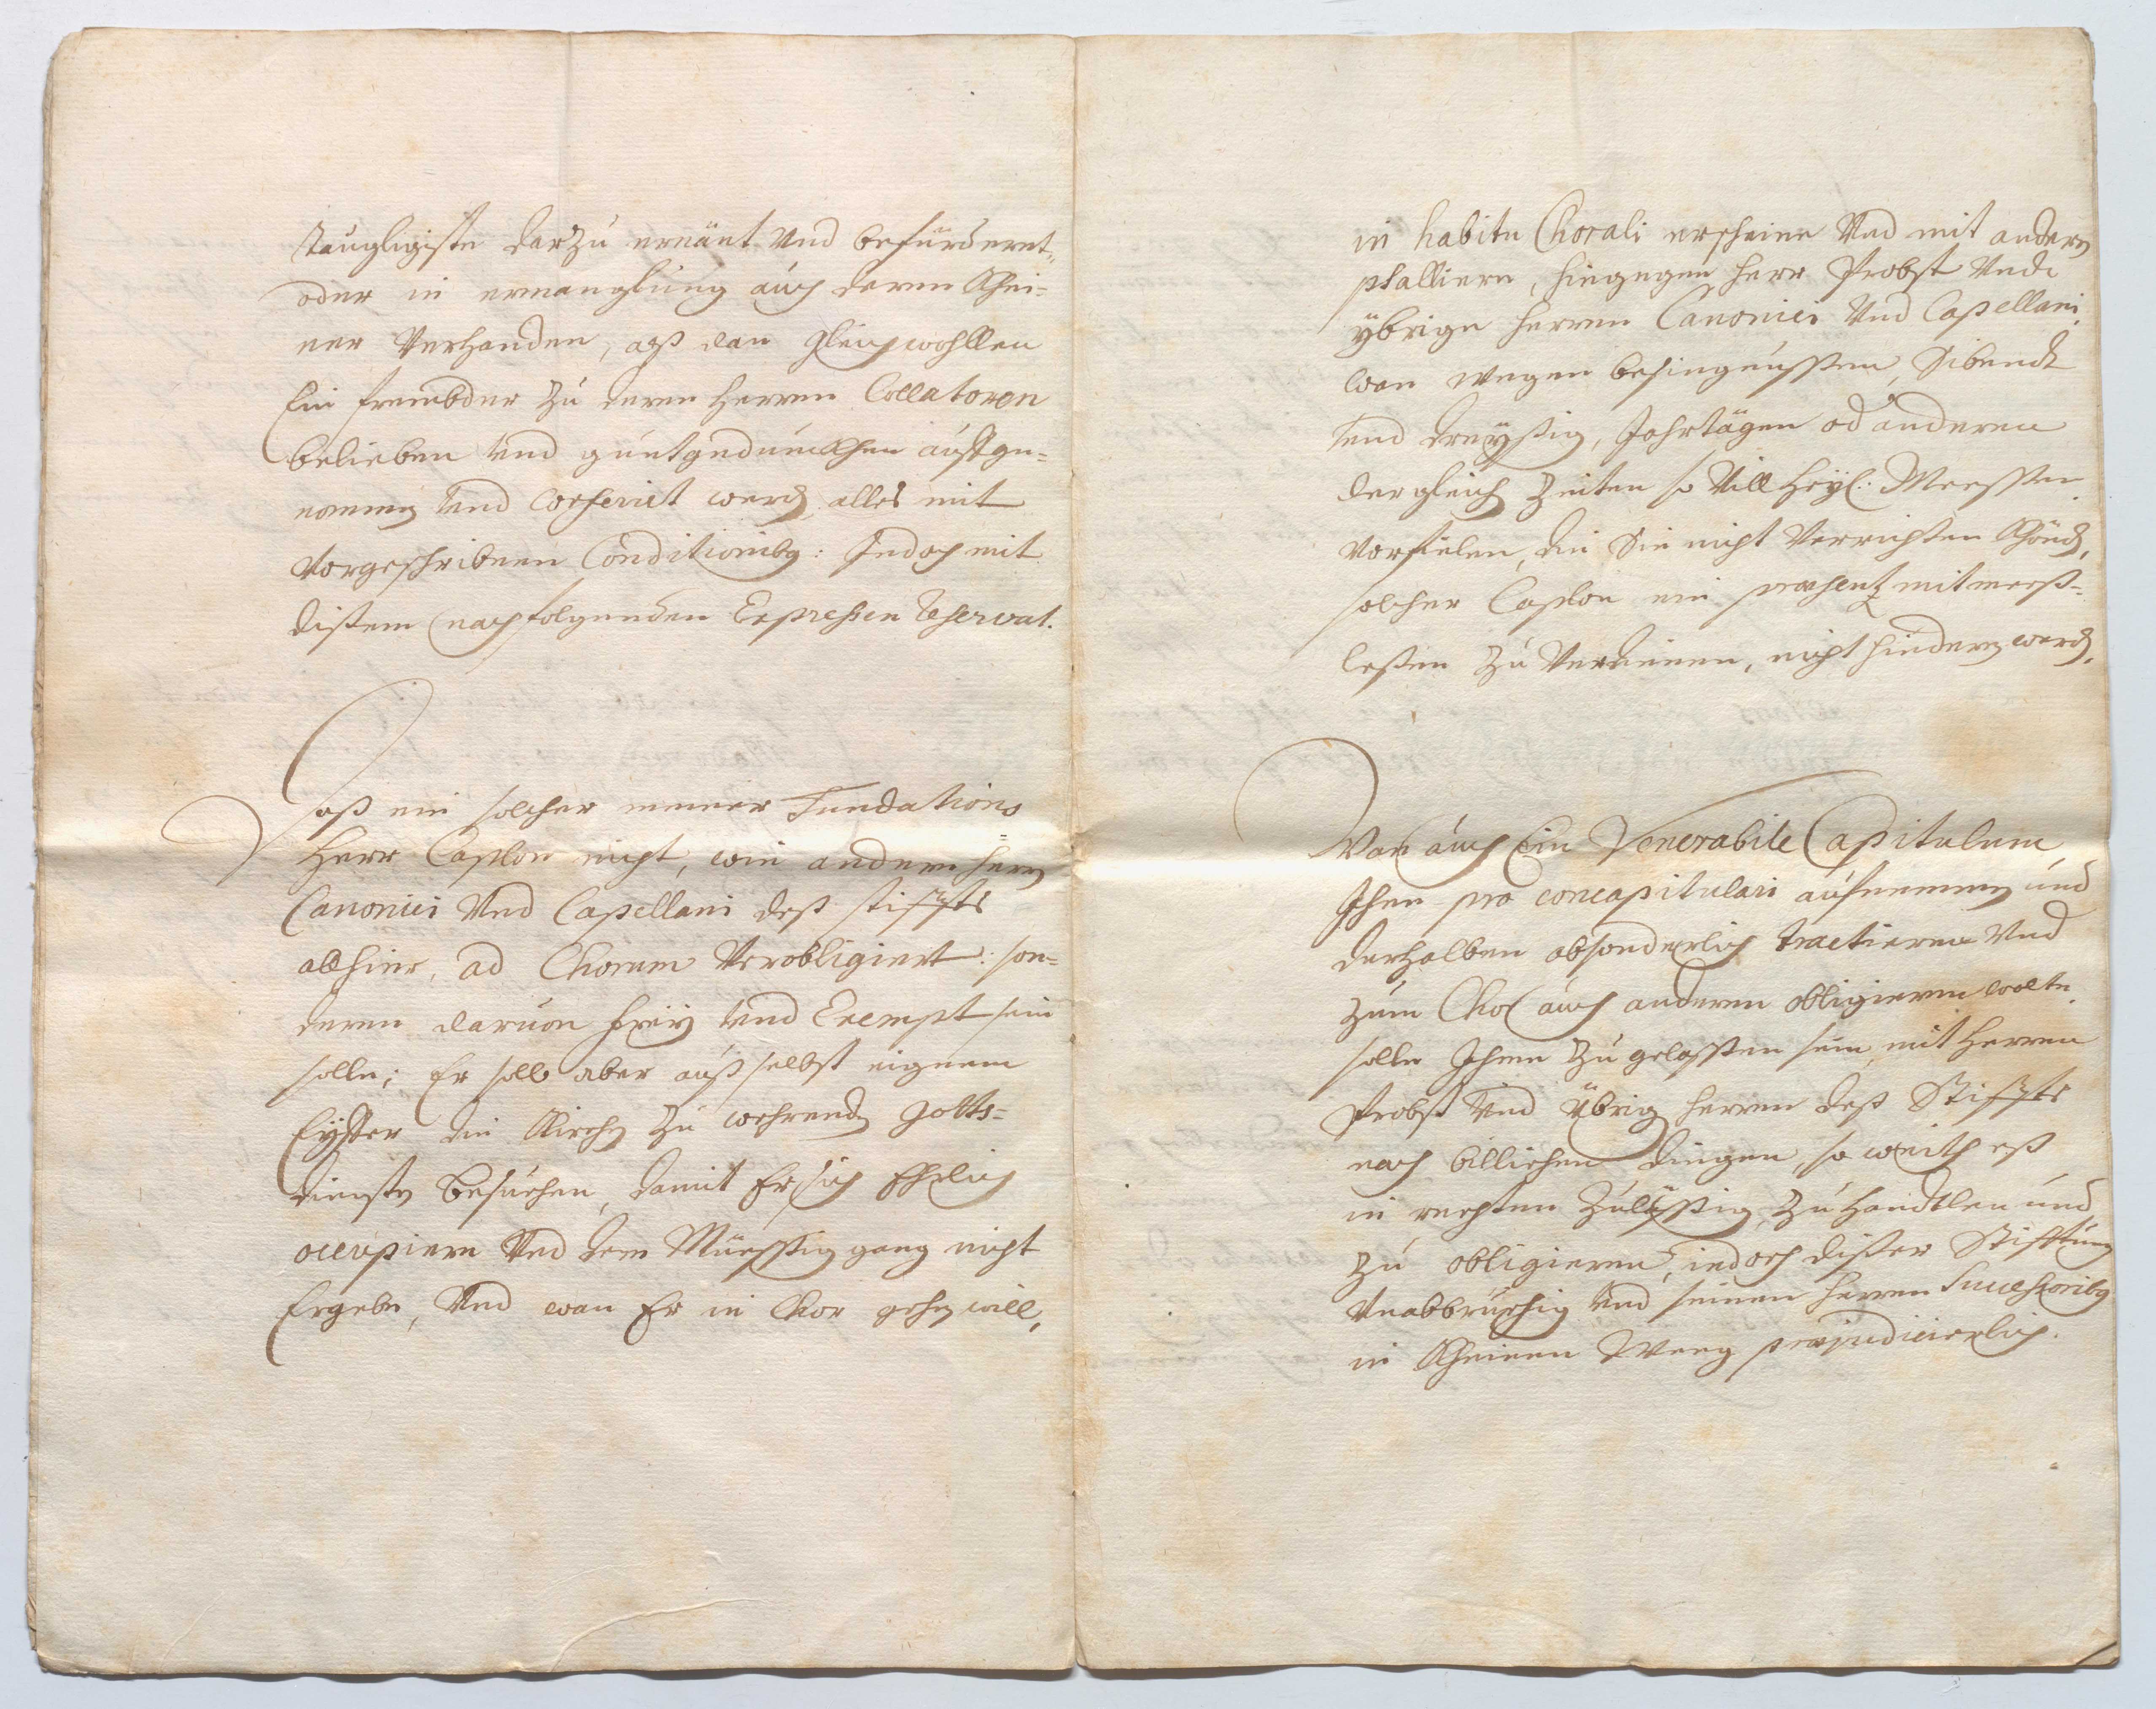 Taugligiste darzu ernänt Und befürderet,,
oder in ermanglung auch deren Khei=
ner Verhanden, alß dan gleichwohllen
Ein frembder zu deren Herren Collatoren
belieben und guetgedunckhen aufge=
nomen und Conferiert werden, alles mit
Vorgeschribnen Conditionibus: Jedoch mit
dißem nachfolgenden Expressen Reservat.
Daß ein solcher meiner Fundations
Herr Caplon nicht, wie andere Herren
Canonici Und Capellani deß stiffts
allhier, ad Chorum Verobligiert: son=
deren daruon frey und Exempt sein
solle; Er soll aber auß selbst eignem
Eyffer die Kirchen zu wehrenden Gotts=
diensten besuchen, damit Er sich Ehrlich
occupiere Und dem Müessiggang nicht
Ergebe, Und wan Er in Chor gehen will,
in habitu Chorali erscheine Und mit anderen
psalliere, hingegen Herr Probst Unde
ybrige Herren Canonici Und Capellani,
wan wegen besingnussen, Sibendt
und dreyssig, Jahrtägen od anderen
dergleich Zeiten so Vill Heyl: Meessen
Vorfielen, die Sie nicht Verrichten Khönden,
solcher Caplon ein praesentz mit meeß=
leßen zu Verdienen, nicht hinderen werden.
Wan auch Ein Venerabile Capitulum,
Ihne pro concapitulari aufnemmen und
derhalben absonderlich tractieren Und
zum Chor auch anderem obligieren wolte,
solle Ihme zu gelassen sein, mit Herren
Probst Und Übrigen Herren deß Stiffts
nach billichen dingen, so weith eß
in rechten Zulässig, zu handtlen und
zu obligieren, iedoch dißer Stifftung
Unabbrüchig und seinen Herren Successoribus
in Kheinen Weeg praejudicierlich.